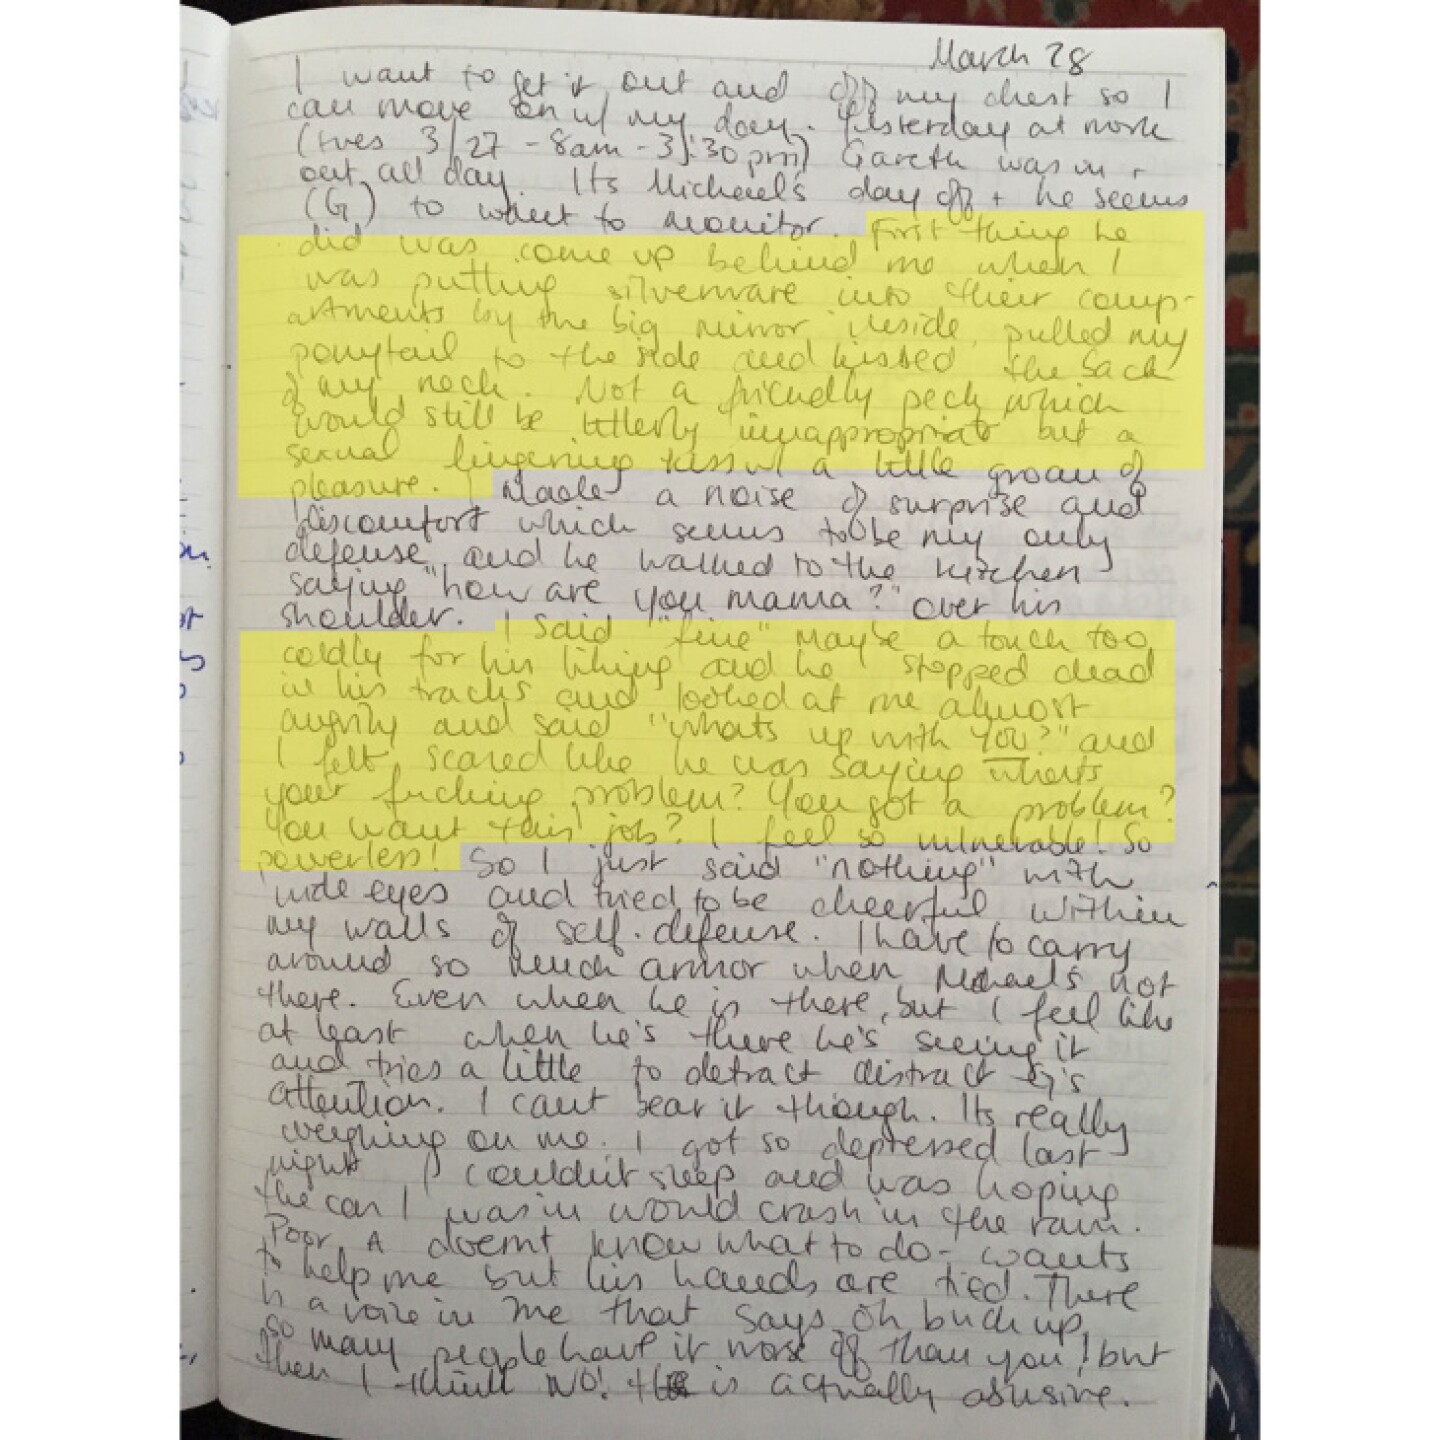 March 28
I want to get it out and off my chest so I
can move on w/ my day. Yesterday at work
(tues 3/27 - 8am - 3:30pm) Gareth was in +
out all day. Its Michael's day off + he seems
(G) to want to monitor. First thing he
did was come up behind me when I
was putting silverware into their comp-
artments by the big mirror inside, pulled my
ponytail to the side and kissed the back
of my neck. Not a friendly peck which
would still be utterly innappropriate but a
sexual lingering kiss w/ a little groan of
pleasure. I made a noise of surprise and
discomfort which seems to be my only
defense and he walked to the kitchen
saying "how are you mama?" over his
shoulder. I said "fine" maybe a touch too
coldly for his liking and he stopped dead
in his tracks and looked at me almost
angrily and said "whats up with you?" and
I felt scared like he was saying whats
your fucking problem? You got a problem?
You want this job? I feel so vulnerable! So
powerless! So I just said "nothing" with
wide eyes and tried to be cheerful within
my walls of self-defense. I have to carry
around so much armor when Michael's not
there. Even when he is there, but I feel like
at least when he's there he's seeing it
and tries a little to detract distract G's
attention. I cant bear it though. Its really
weighing on me. I got so depressed last
night I couldn't sleep and was hoping
the car I was in would crash in the rain.
Poor A doesnt know what to do - wants
to help me but his hands are tied. There
is a voice in me that says oh buck up,
so many people have it worse off than you! but
then I think NO! this is actually abusive.